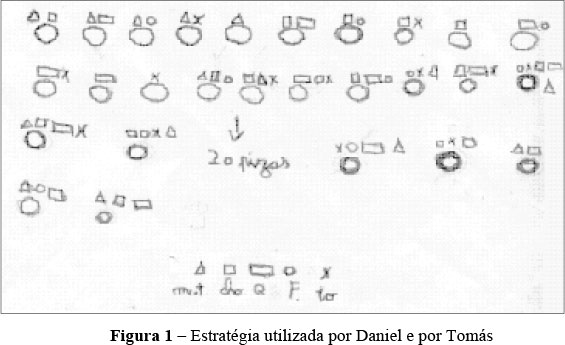 20 pizzas
cho Q F. to
Figura 1 – Estratégia utilizada por Daniel e por Tomás